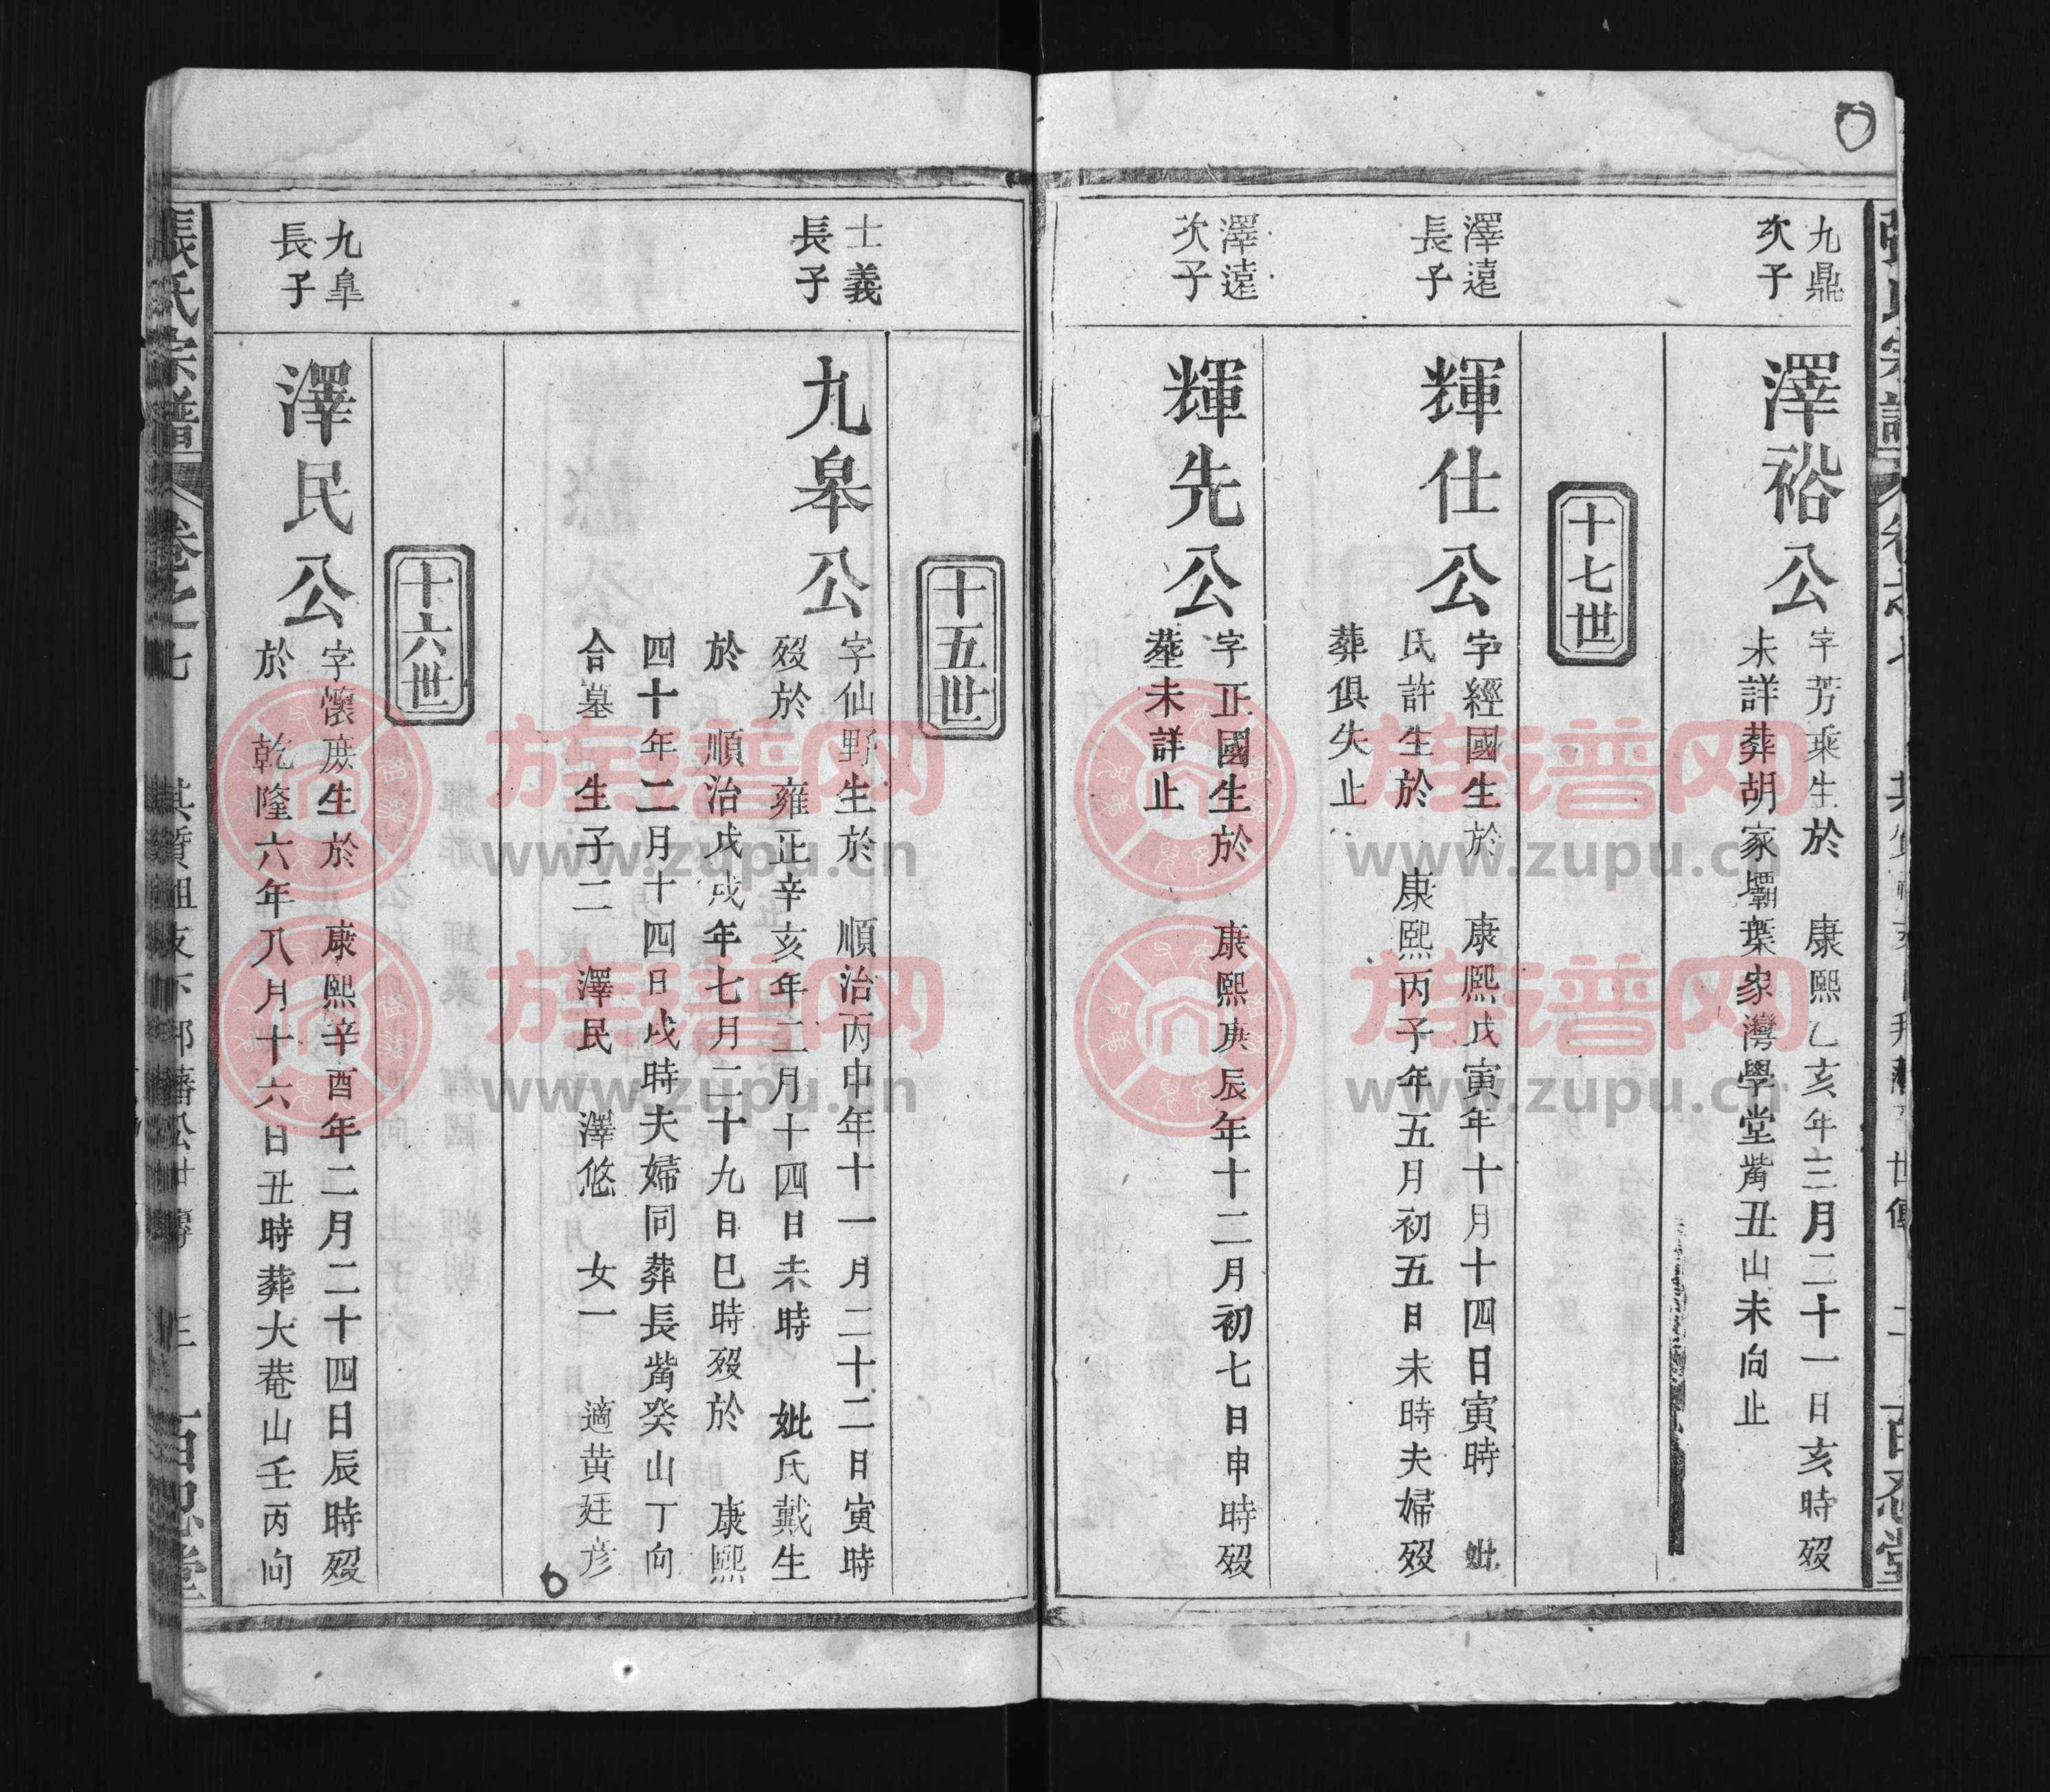 九鼎
次子
澤裕公
字芳乘生於 康熙乙亥年三月二十一日亥時歿
未詳葬胡家壩葉家灣學堂觜丑山未向止
十七世
澤遠
長子
輝仕公
字經國生於 康熙戊寅年十月十四日寅時 妣
氏許生於 康熙丙子年五月初五日未時夫婦歿
葬俱失止
澤遠
次子
輝先公
字正國生於 康熙庚辰年十二月初七日申時歿
葬未詳止
十五世
士義
長子
九皋公
字仙野生於 順治丙申年十一月二十二日寅時
歿於 雍正辛亥年二月十四日未時 妣氏戴生
於 順治戊戌年七月二十九日巳時歿於 康熙
四十年二月十四日戌時夫婦同葬長觜癸山丁向
合墓 生子二 澤民 澤悠 女一 適黃廷彥
十六世
九皐
長子
澤民公
字懷庶生於 康熙辛酉年二月二十四日辰時歿
於 乾隆六年八月十六日丑時葬大菴山壬丙向
張氏宗譜 卷之七
百忍堂
族谱网
www.zupu.cn
族谱网
www.zupu.cn
族谱网
www.zupu.cn
族谱网
www.zupu.cn